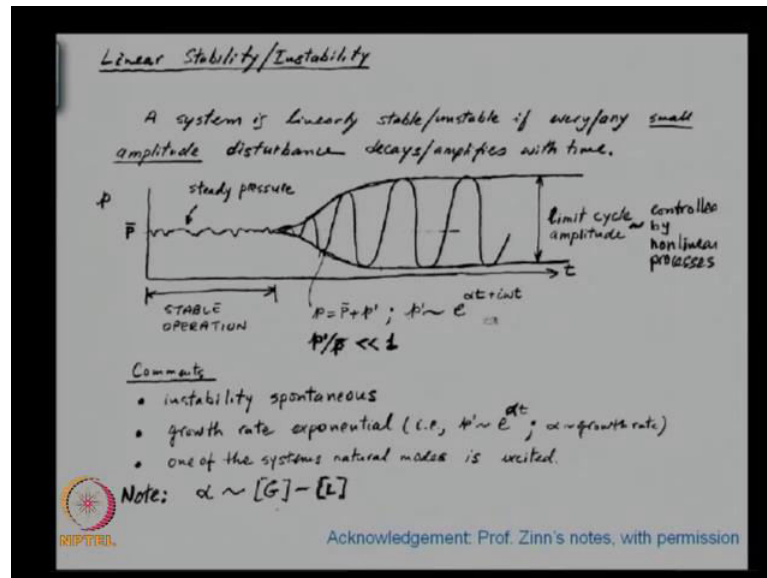 Linear Stability/Instability
A system is linearly stable/unstable if every/any small
amplitude disturbance decays/amplifies with time.
p
steady pressure
p̄
limit cycle ~ controlled
amplitude by
nonlinear
processes
t
STABLE
OPERATION
p = p̄ + p' ; p' ~ e^{αt+iωt}
p'/p̄ << 1
Comments
• instability spontaneous
• growth rate exponential (i.e, p' ~ e^{αt} ; α ~ growth rate)
• one of the systems natural modes is excited.
Note: α ~ [G] - [L]
NPTEL
Acknowledgement: Prof. Zinn's notes, with permission